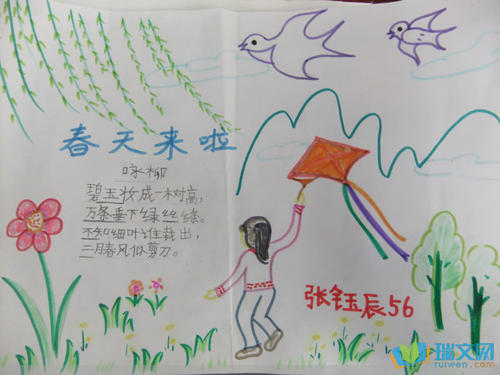 春天来啦
咏柳
碧玉妆成一树高，
万条垂下绿丝绦。
不知细叶谁裁出，
二月春风似剪刀。
张钰辰56
瑞文网
ruiwen.com